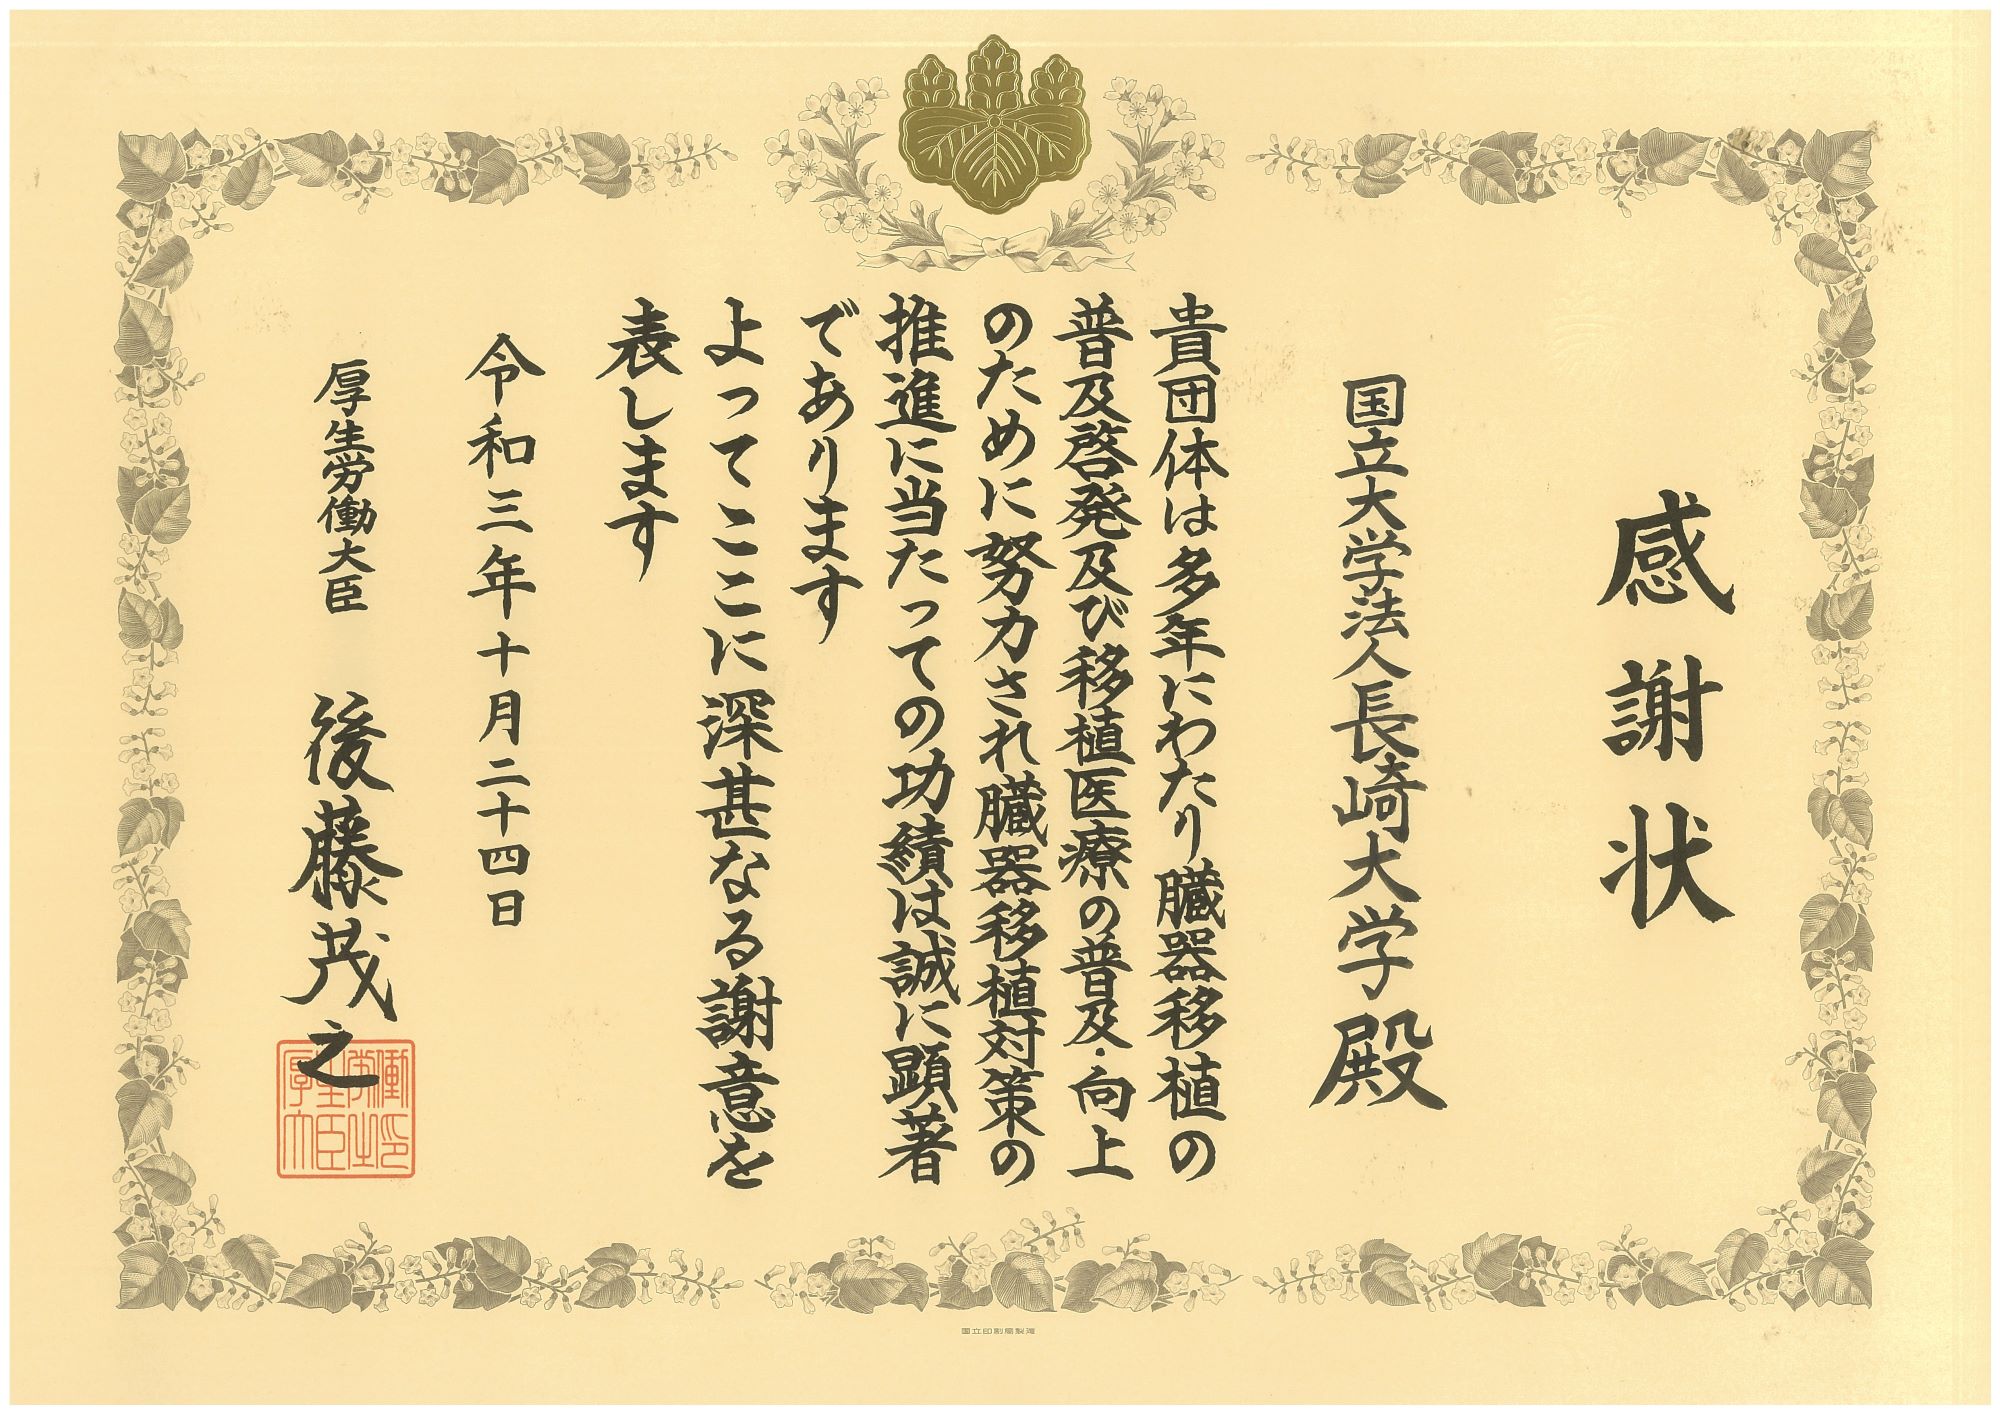 感謝状
国立大学法人長崎大学殿
貴団体は多年にわたり臓器移植の
普及啓発及び移植医療の普及・向上
のために努力され臓器移植対策の
推進に当たっての功績は誠に顕著
であります
よってここに深甚なる謝意を
表します
令和三年十月二十四日
厚生労働大臣 後藤茂之
国立印刷局製造